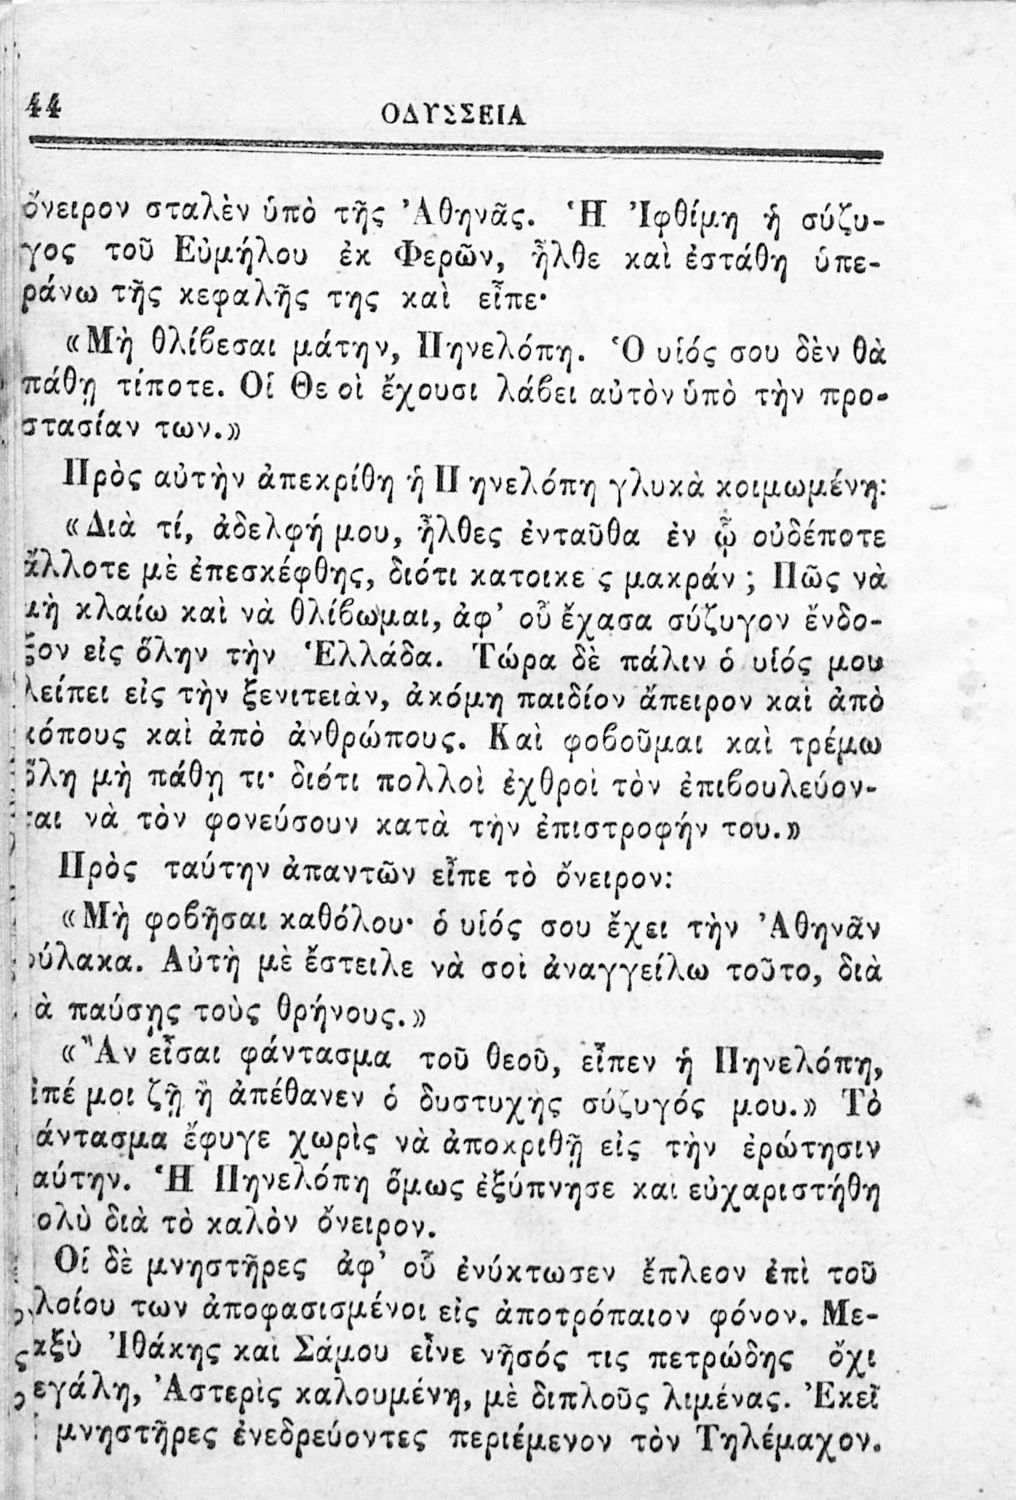 44 ΟΔΥΣΣΕΙΑ
ὄνειρον σταλὲν ὑπὸ τῆς Ἀθηνᾶς. Ἡ Ἰφθίμη ἡ σύζυ-
γος τοῦ Εὐμήλου ἐκ Φερῶν, ἦλθε καὶ ἐστάθη ὑπε-
ράνω τῆς κεφαλῆς της καὶ εἶπε·
«Μὴ θλίβεσαι μάτην, Πηνελόπη. Ὁ υἱός σου δὲν θὰ
πάθῃ τίποτε. Οἱ Θεοὶ ἔχουσι λάβει αὐτὸν ὑπὸ τὴν προ-
στασίαν των.»
Πρὸς αὐτὴν ἀπεκρίθη ἡ Πηνελόπη γλυκὰ κοιμωμένη:
«Διὰ τί, ἀδελφή μου, ἦλθες ἐνταῦθα ἐν ᾧ οὐδέποτε
ἄλλοτε μὲ ἐπεσκέφθης, διότι κατοικε ς μακράν; Πῶς νὰ
μὴ κλαίω καὶ νὰ θλίβωμαι, ἀφ’ οὗ ἔχασα σύζυγον ἔνδο-
ξον εἰς ὅλην τὴν Ἑλλάδα. Τώρα δὲ πάλιν ὁ υἱός μου
λείπει εἰς τὴν ξενιτειὰν, ἀκόμη παιδίον ἄπειρον καὶ ἀπὸ
κόπους καὶ ἀπὸ ἀνθρώπους. Καὶ φοβοῦμαι καὶ τρέμω
ὅλη μὴ πάθῃ τι· διότι πολλοὶ ἐχθροὶ τὸν ἐπιβουλεύον-
ται νὰ τὸν φονεύσουν κατὰ τὴν ἐπιστροφήν του.»
Πρὸς ταύτην ἀπαντῶν εἶπε τὸ ὄνειρον:
«Μὴ φοβῆσαι καθόλου· ὁ υἱός σου ἔχει τὴν Ἀθηνᾶν
φύλακα. Αὐτὴ μὲ ἔστειλε νὰ σοὶ ἀναγγείλω τοῦτο, διὰ
ὰ παύσῃς τοὺς θρήνους.»
«Ἂν εἶσαι φάντασμα τοῦ θεοῦ, εἶπεν ἡ Πηνελόπη,
ἰπέ μοι ζῇ ἢ ἀπέθανεν ὁ δυστυχὴς σύζυγός μου.» Τὸ
άντασμα ἔφυγε χωρὶς νὰ ἀποκριθῇ εἰς τὴν ἐρώτησιν
αύτην. Ἡ Πηνελόπη ὅμως ἐξύπνησε καὶ εὐχαριστήθη
ολὺ διὰ τὸ καλὸν ὄνειρον.
Οἱ δὲ μνηστῆρες ἀφ’ οὗ ἐνύκτωσεν ἔπλεον ἐπὶ τοῦ
λοίου των ἀποφασισμένοι εἰς ἀποτρόπαιον φόνον. Με-
αξὺ Ἰθάκης καὶ Σάμου εἶνε νῆσός τις πετρώδης ὄχι
εγάλη, Ἀστερὶς καλουμένη, μὲ διπλοῦς λιμένας. Ἐκεῖ
ἱ μνηστῆρες ἐνεδρεύοντες περιέμενον τὸν Τηλέμαχον.